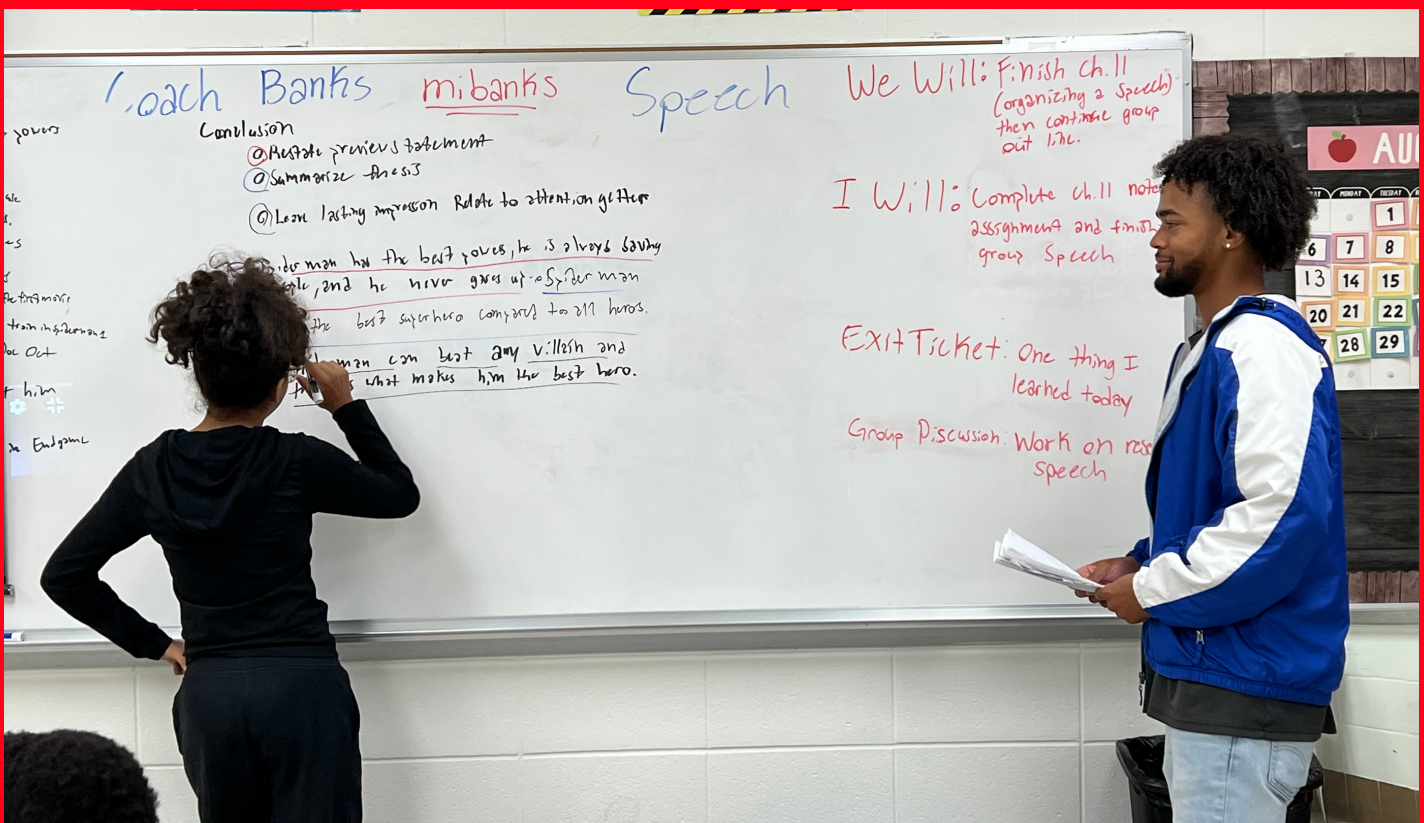 Coach Banks mibanks Speech
powers
Conclusion
Restate previews statement
Summarize thesis
Leave lasting impression Relate to attention getter
man has the best powers, he is always saving
and he never gives up. Spider man
the best superhero compared to all heros.
man can beat any villain and
what makes him the best hero.
the first movie
Doc Oct
him
Endgame
We Will: Finish ch.11
(organizing a speech)
then continue group
out line.
I Will: Complete ch.11 notes
assignment and finish
group Speech
Exit Ticket: One thing I
learned today
Group Discussion: Work on
speech
AU
MONDAY TUESDAY
1
6 7 8
13 14 15
20 21 22
28 29